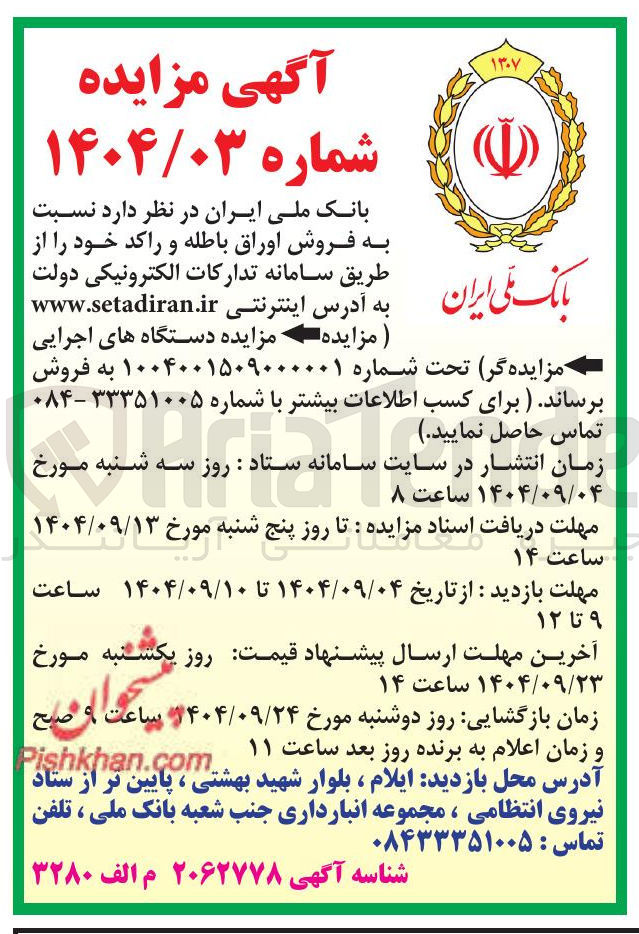 ۱۳۰۷
بانک ملی ایران
آگهی مزایده
شماره ۱۴۰۴/۰۳
بانک ملی ایران در نظر دارد نسبت
به فروش اوراق باطله و راکد خود را از
طریق سامانه تدارکات الکترونیکی دولت
به آدرس اینترنتی www.setadiran.ir
( مزایده⬅ مزایده دستگاه های اجرایی
⬅مزایده‌گر) تحت شماره ۱۰۰۴۰۰۱۵۰۹۰۰۰۰۰۱ به فروش
برساند. ( برای کسب اطلاعات بیشتر با شماره ۳۳۳۵۱۰۰۵ -۰۸۴
تماس حاصل نمایید.)
زمان انتشار در سایت سامانه ستاد : روز سه شنبه مورخ
۱۴۰۴/۰۹/۰۴ ساعت ۸
مهلت دریافت اسناد مزایده : تا روز پنج شنبه مورخ ۱۴۰۴/۰۹/۱۳
ساعت ۱۴
مهلت بازدید : ازتاریخ ۱۴۰۴/۰۹/۰۴ تا ۱۴۰۴/۰۹/۱۰ ساعت
۹ تا ۱۲
آخرین مهلت ارسال پیشنهاد قیمت: روز یکشنبه مورخ
۱۴۰۴/۰۹/۲۳ ساعت ۱۴
زمان بازگشایی: روز دوشنبه مورخ ۱۴۰۴/۰۹/۲۴ ساعت ۹ صبح
و زمان اعلام به برنده روز بعد ساعت ۱۱
آدرس محل بازدید: ایلام ، بلوار شهید بهشتی ، پایین تر از ستاد
نیروی انتظامی ، مجموعه انبارداری جنب شعبه بانک ملی ، تلفن
تماس : ۰۸۴۳۳۳۵۱۰۰۵
شناسه آگهی ۲۰۶۲۷۷۸ م الف ۳۲۸۰
پیشخوان
Pishkhan.com
AriaTende